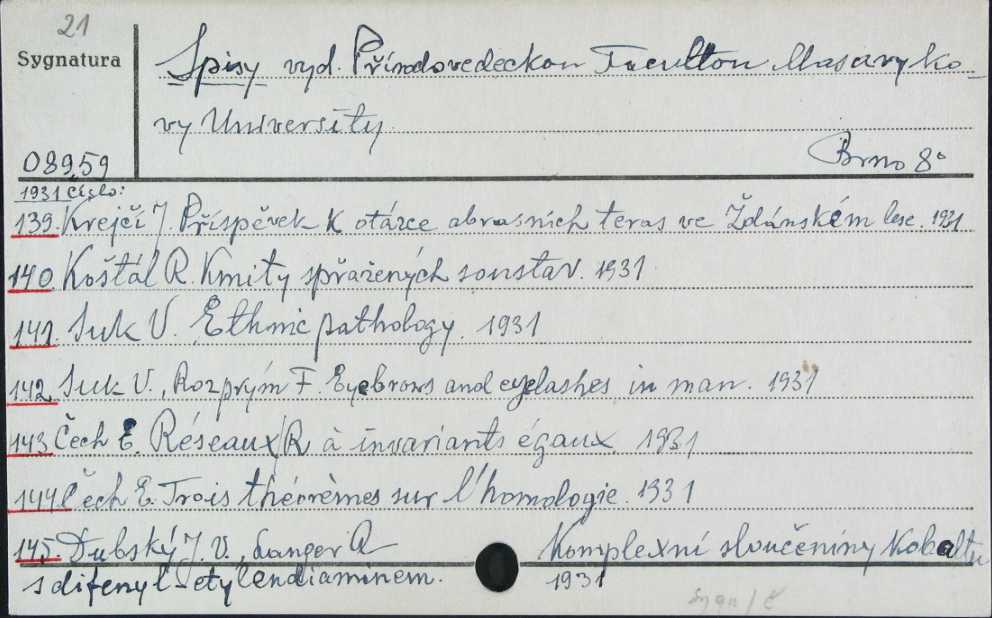 21
Sygnatura
Spisy vyd. Přírodovedeckou Facultou Masaryko-
vy University
Brno 8°
08959
1931 číslo:
139. Krejčí J. Příspěvek k otázce abrasních teras ve Ždánském lese. 1931
140. Košťál R. Kmity spřažených soustav. 1931
141. Suk V. Ethnic pathology. 1931
142. Suk V., Rozprým F. Eyebrows and eyelashes in man. 1931
143. Čech E. Réseaux R à invariants égaux. 1931
144 Čech E. Trois théorèmes sur l'homologie. 1931
145. Dubský J. V., Langer A Komplexní sloučeniny Kobaltu
s difenyl-etylendiaminem. 1931
Sygn/č